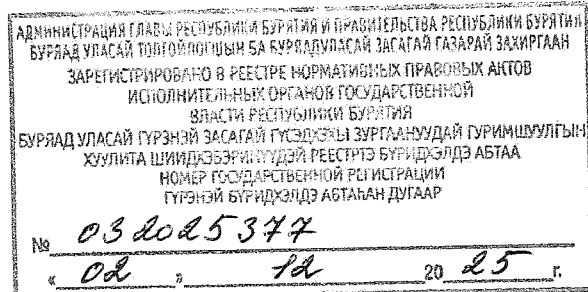 АДМИНИСТРАЦИЯ ГЛАВЫ РЕСПУБЛИКИ БУРЯТИЯ И ПРАВИТЕЛЬСТВА РЕСПУБЛИКИ БУРЯТИЯ
БУРЯАД УЛАСАЙ ТОЛГОЙЛОГШЫН БА БУРЯАД УЛАСАЙ ЗАСАГАЙ ГАЗАРАЙ ЗАХИРГААН
ЗАРЕГИСТРИРОВАНО В РЕЕСТРЕ НОРМАТИВНЫХ ПРАВОВЫХ АКТОВ
ИСПОЛНИТЕЛЬНЫХ ОРГАНОВ ГОСУДАРСТВЕННОЙ
ВЛАСТИ РЕСПУБЛИКИ БУРЯТИЯ
БУРЯАД УЛАСАЙ ГҮРЭНЭЙ ЗАСАГАЙ ГҮСЭДХЭХЫ ЗУРГААНУУДАЙ ГУРИМШУУЛГЫН
ХУУЛИТА ШИИДХЭБЭРИНҮҮДЭЙ РЕЕСТРТЭ БҮРИДХЭЛДЭ АБТАА
НОМЕР ГОСУДАРСТВЕННОЙ РЕГИСТРАЦИИ
ГҮРЭНЭЙ БҮРИДХЭЛДЭ АБТАҺАН ДУГААР
№ 032025377
« 02 » 12 20 25 г.